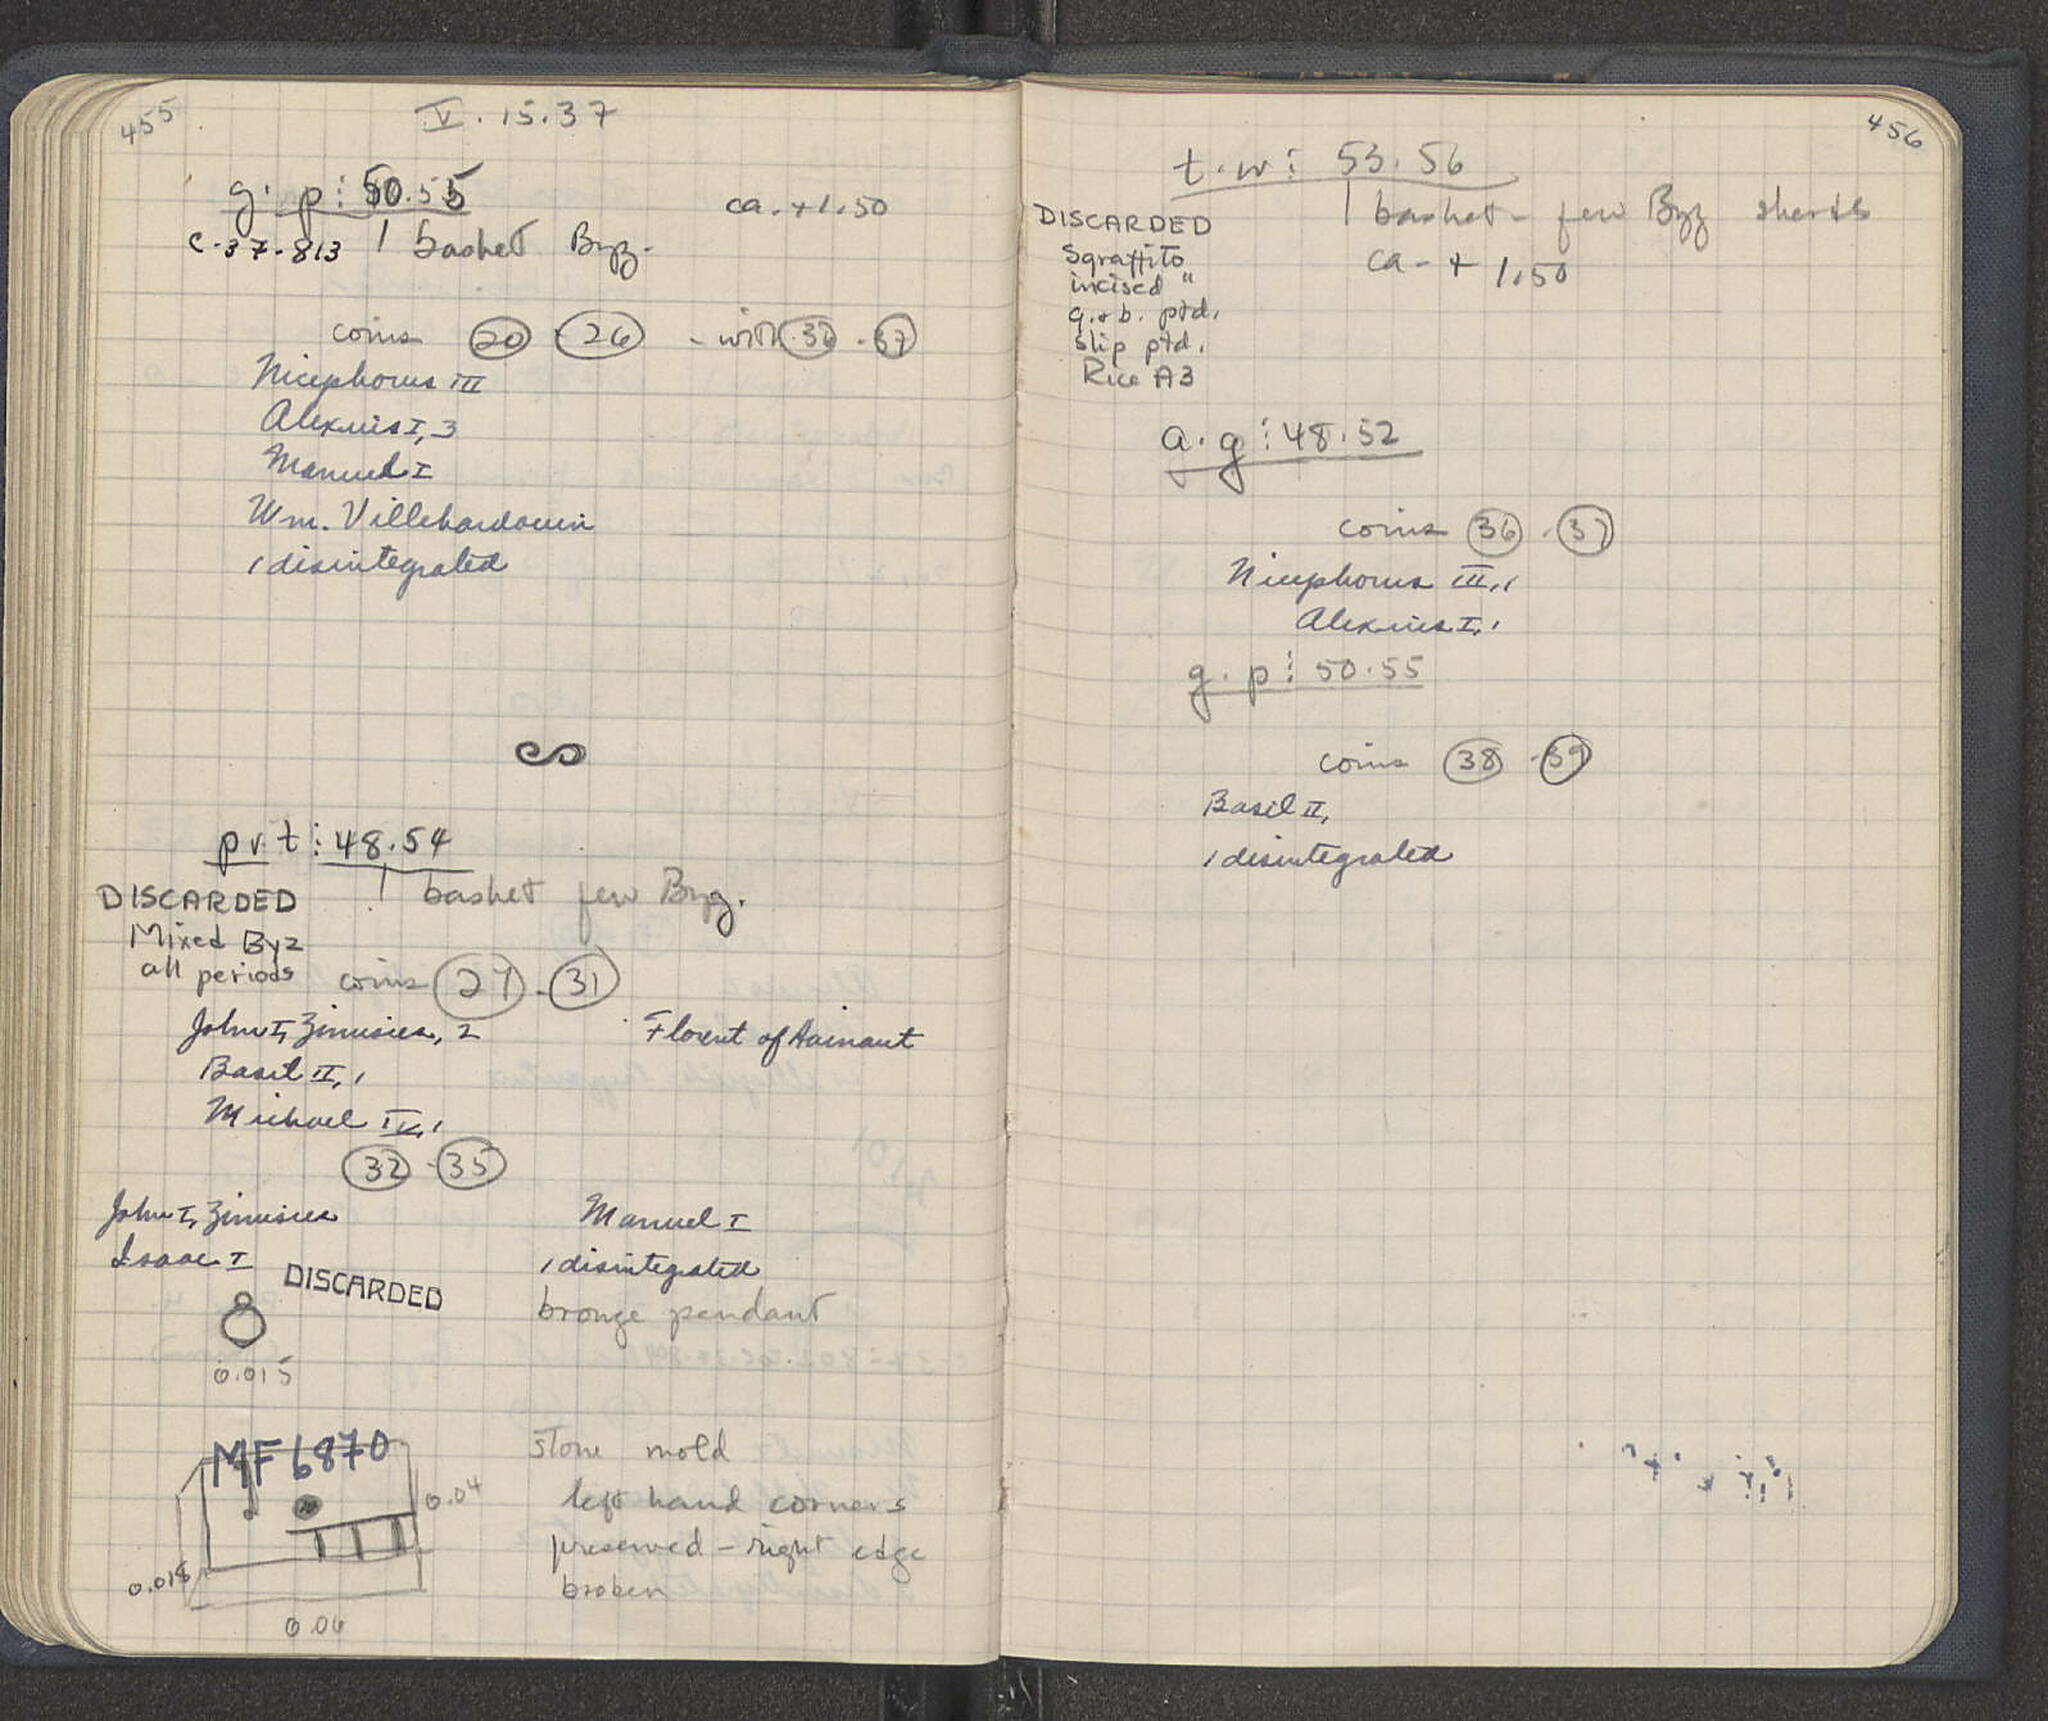 455
V. 15. 37
g. p ⋮ 50.55
ca. +1.50
C-37-813 1 basket Byz.
coins 20 - 26 - with 38 - 37
Nicephorus III
Alexius I, 3
Manuel I
Wm. Villehardouin
1 disintegrated
pr. t ⋮ 48.54
1 basket few Byz.
DISCARDED
Mixed Byz
all periods
coins 27 - 31
John I, Zimisces, 2
Florent of Hainaut
Basil II, 1
Michael IV, 1
32 - 35
John I, Zimisces
Manuel I
Isaac I
1 disintegrated
DISCARDED
bronze pendant
0.015
MF 6870
stone mold
left hand corners
preserved - right edge
broken
0.04
0.018
0.06
456
t. w ⋮ 53.56
1 basket - few Byz sherds
ca - + 1.50
DISCARDED
Sgraffito
incised "
g. & b. ptd.
slip ptd.
Rice A3
a. g ⋮ 48.52
coins 36 - 37
Nicephorus III, 1
Alexius I, 1
g. p ⋮ 50.55
coins 38 - 39
Basil II,
1 disintegrated